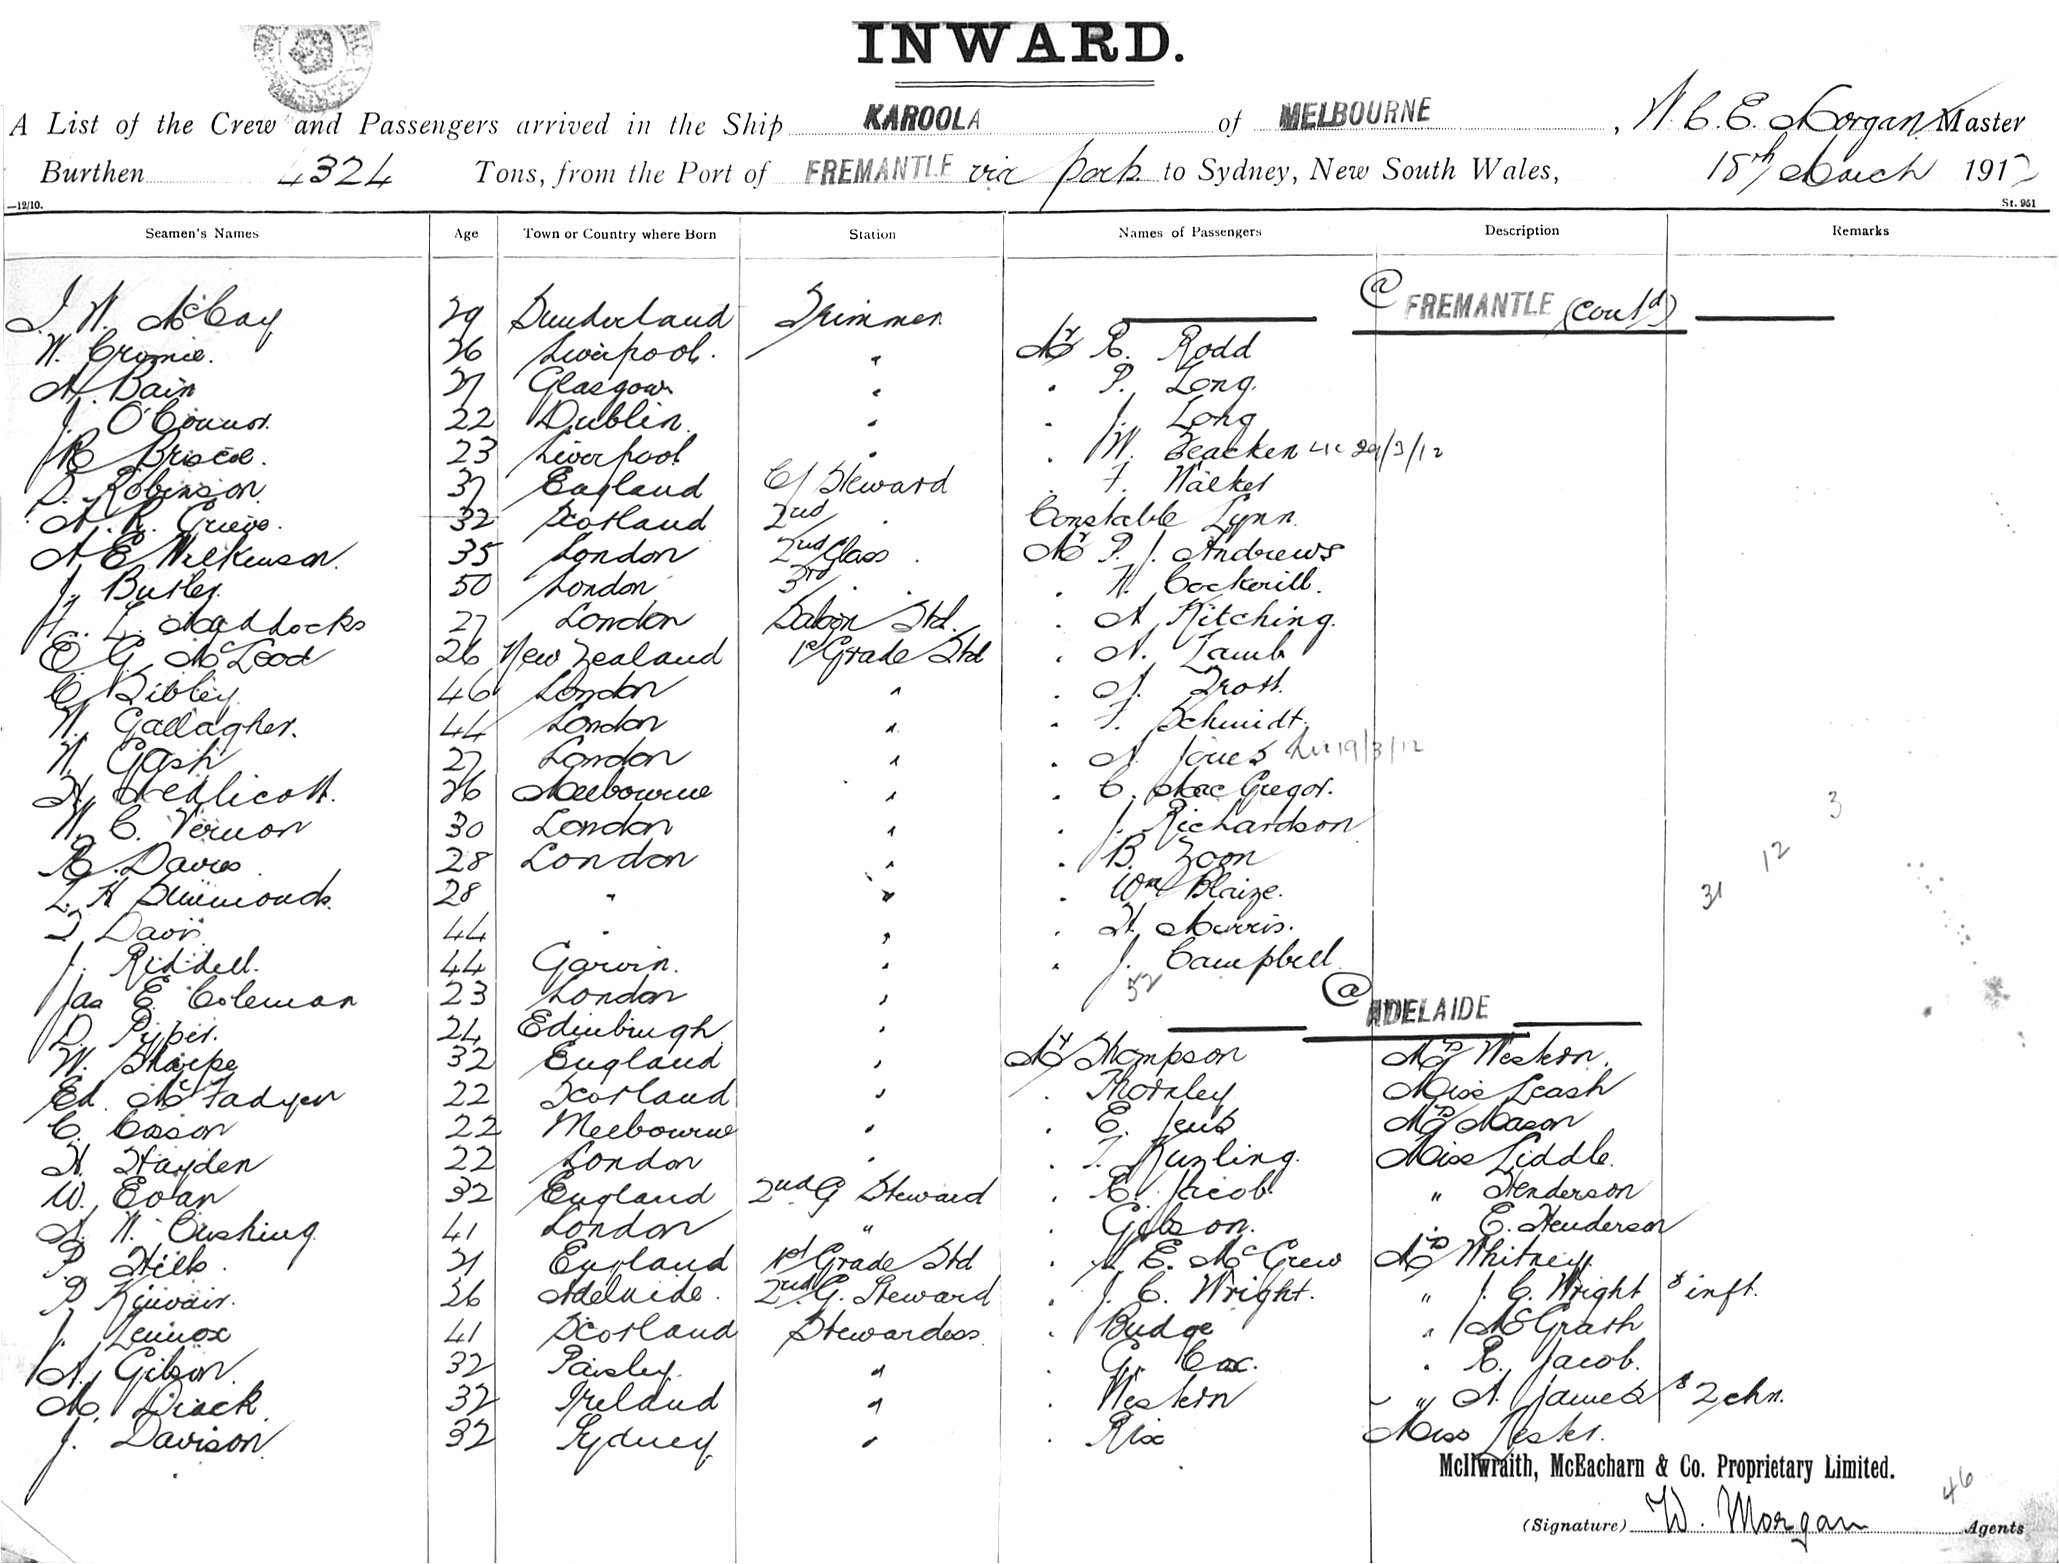 INWARD.
A List of the Crew and Passengers arrived in the Ship KAROOLA of MELBOURNE, W. C. E. Morgan Master
Burthen 4324 Tons, from the Port of FREMANTLE via ports to Sydney, New South Wales, 18th March 1912
—12/10. St. 951
Seamen's Names Age Town or Country where Born Station Names of Passengers Description Remarks
@ FREMANTLE (cont'd)
J. W. McCay 29 Sunderland Trimmer
W. Cromie. 26 Liverpool. " Mr R. Rodd
A. Bain 27 Glasgow " . P. Long.
J. O'Connor. 22 Dublin. " . J. Long
R. Briscoe. 23 Liverpool " . W. Leacken 29/3/12
D. Robinson 37 England C/ Steward . F. Walker
A. R. Grieve. 32 Scotland 2nd . Constable Lynn.
A. E. Wilkinson. 35 London 2nd Class . Mr P. J. Andrews
J. Butler. 50 London 3rd . . . W. Cockerill.
H. L. Maddocks 27 London Saloon Std. . A Kitching.
E. G. McLeod 26 New Zealand 1st Grade Std . A. Lamb
C. Sibley 46 London " . A. Trott.
W. Gallagher. 44 London " . F. Schmidt.
W. Gash 27 London " . A. Jones 19/3/12
H. Medlicott. 26 Melbourne " . C. MacGregor.
W. C. Vernon 30 London " . J. Richardson 3
R. Davies 28 London " . B. Zoon 12
L. H Simmonds. 28 " " . Wm Blaize. 31
J Davis 44 " " . H. Morris.
J. Riddell. 44 Garvin. " . J. Campbell
52
@ ADELAIDE
Jas E. Coleman 23 London "
D. Pyper. 24 Edinburgh "
W. Sharpe 32 England " Mr Thompson Mrs Western.
Ed. McFadyen 22 Scotland " . Thornley Miss Leash
C. Cason 22 Melbourne " . E. Jens Mrs Mason
H. Hayden 22 London " . T. Kuzling. Miss Liddle.
W. Evan 32 England 2nd G Steward . R. Jacob. " Henderson
A. W. Cushing 41 London " . Gibson. " E. Henderson
P. Hills. 21 England 1st Grade Std . A E. McGrew Mrs Whitney
P. Kinvair. 26 Adelaide. 2nd G. Steward . J. C. Wright. " J. C. Wright & inft.
J. Lennox 41 Scotland Stewardess . Budge " McGrath
A. Gibson. 32 Paisley. " . G. Cox. " R. Jacob.
M. Diack 32 Ireland " . Western " A. James & 2 chn.
J. Davison 32 Sydney " . Rix Miss Lester.
McIlwraith, McEacharn & Co. Proprietary Limited.
46
(Signature) W. Morgan Agents